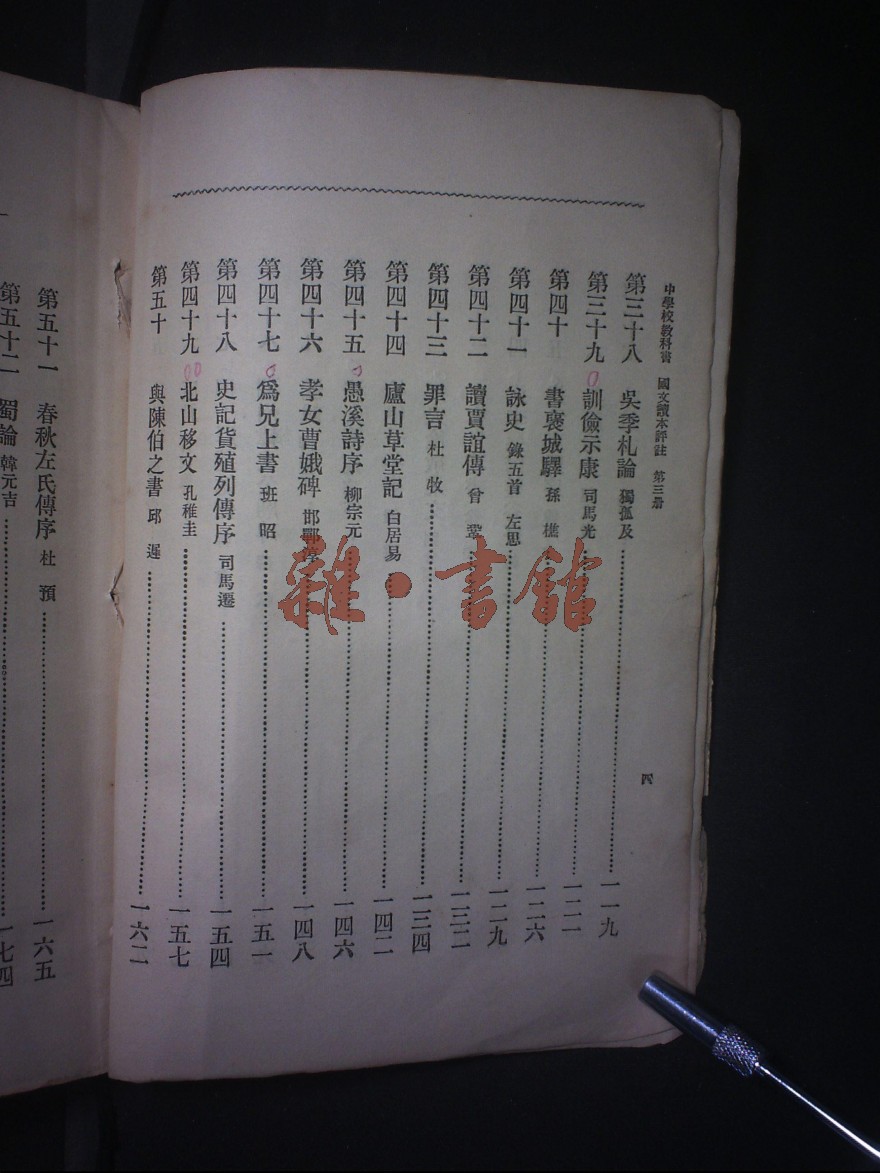 中學校教科書　國文讀本評註　第三册
第三十八　吳季札論　獨孤及……一一九
第三十九　訓儉示康　司馬光……一二一
第四十　書襃城驛　孫樵……一二六
第四十一　詠史　錄五首　左思……一二九
第四十二　讀賈誼傳　曾鞏……一三二
第四十三　罪言　杜牧……一三四
第四十四　廬山草堂記　白居易……一四二
第四十五　愚溪詩序　柳宗元……一四六
第四十六　孝女曹娥碑　邯鄲淳……一四八
第四十七　爲兄上書　班昭……一五一
第四十八　史記貨殖列傳序　司馬遷……一五四
第四十九　北山移文　孔稚圭……一五七
第五十　與陳伯之書　邱遲……一六二
四
第五十一　春秋左氏傳序　杜預……一六五
第五十二　蜀論　韓元吉……一七四
雜·書館